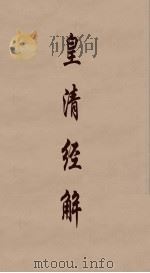 皇清经解
mtoou.info